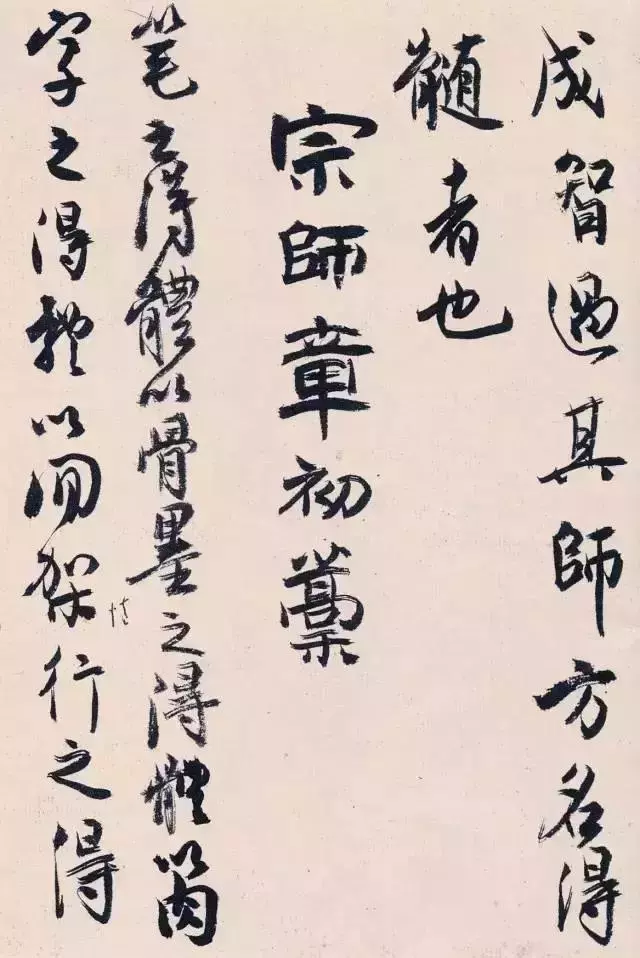 成智過其師方名得
髓者也
宗師章初藁
笔之得體以骨墨之得體以肉
字之得體以間架行之得